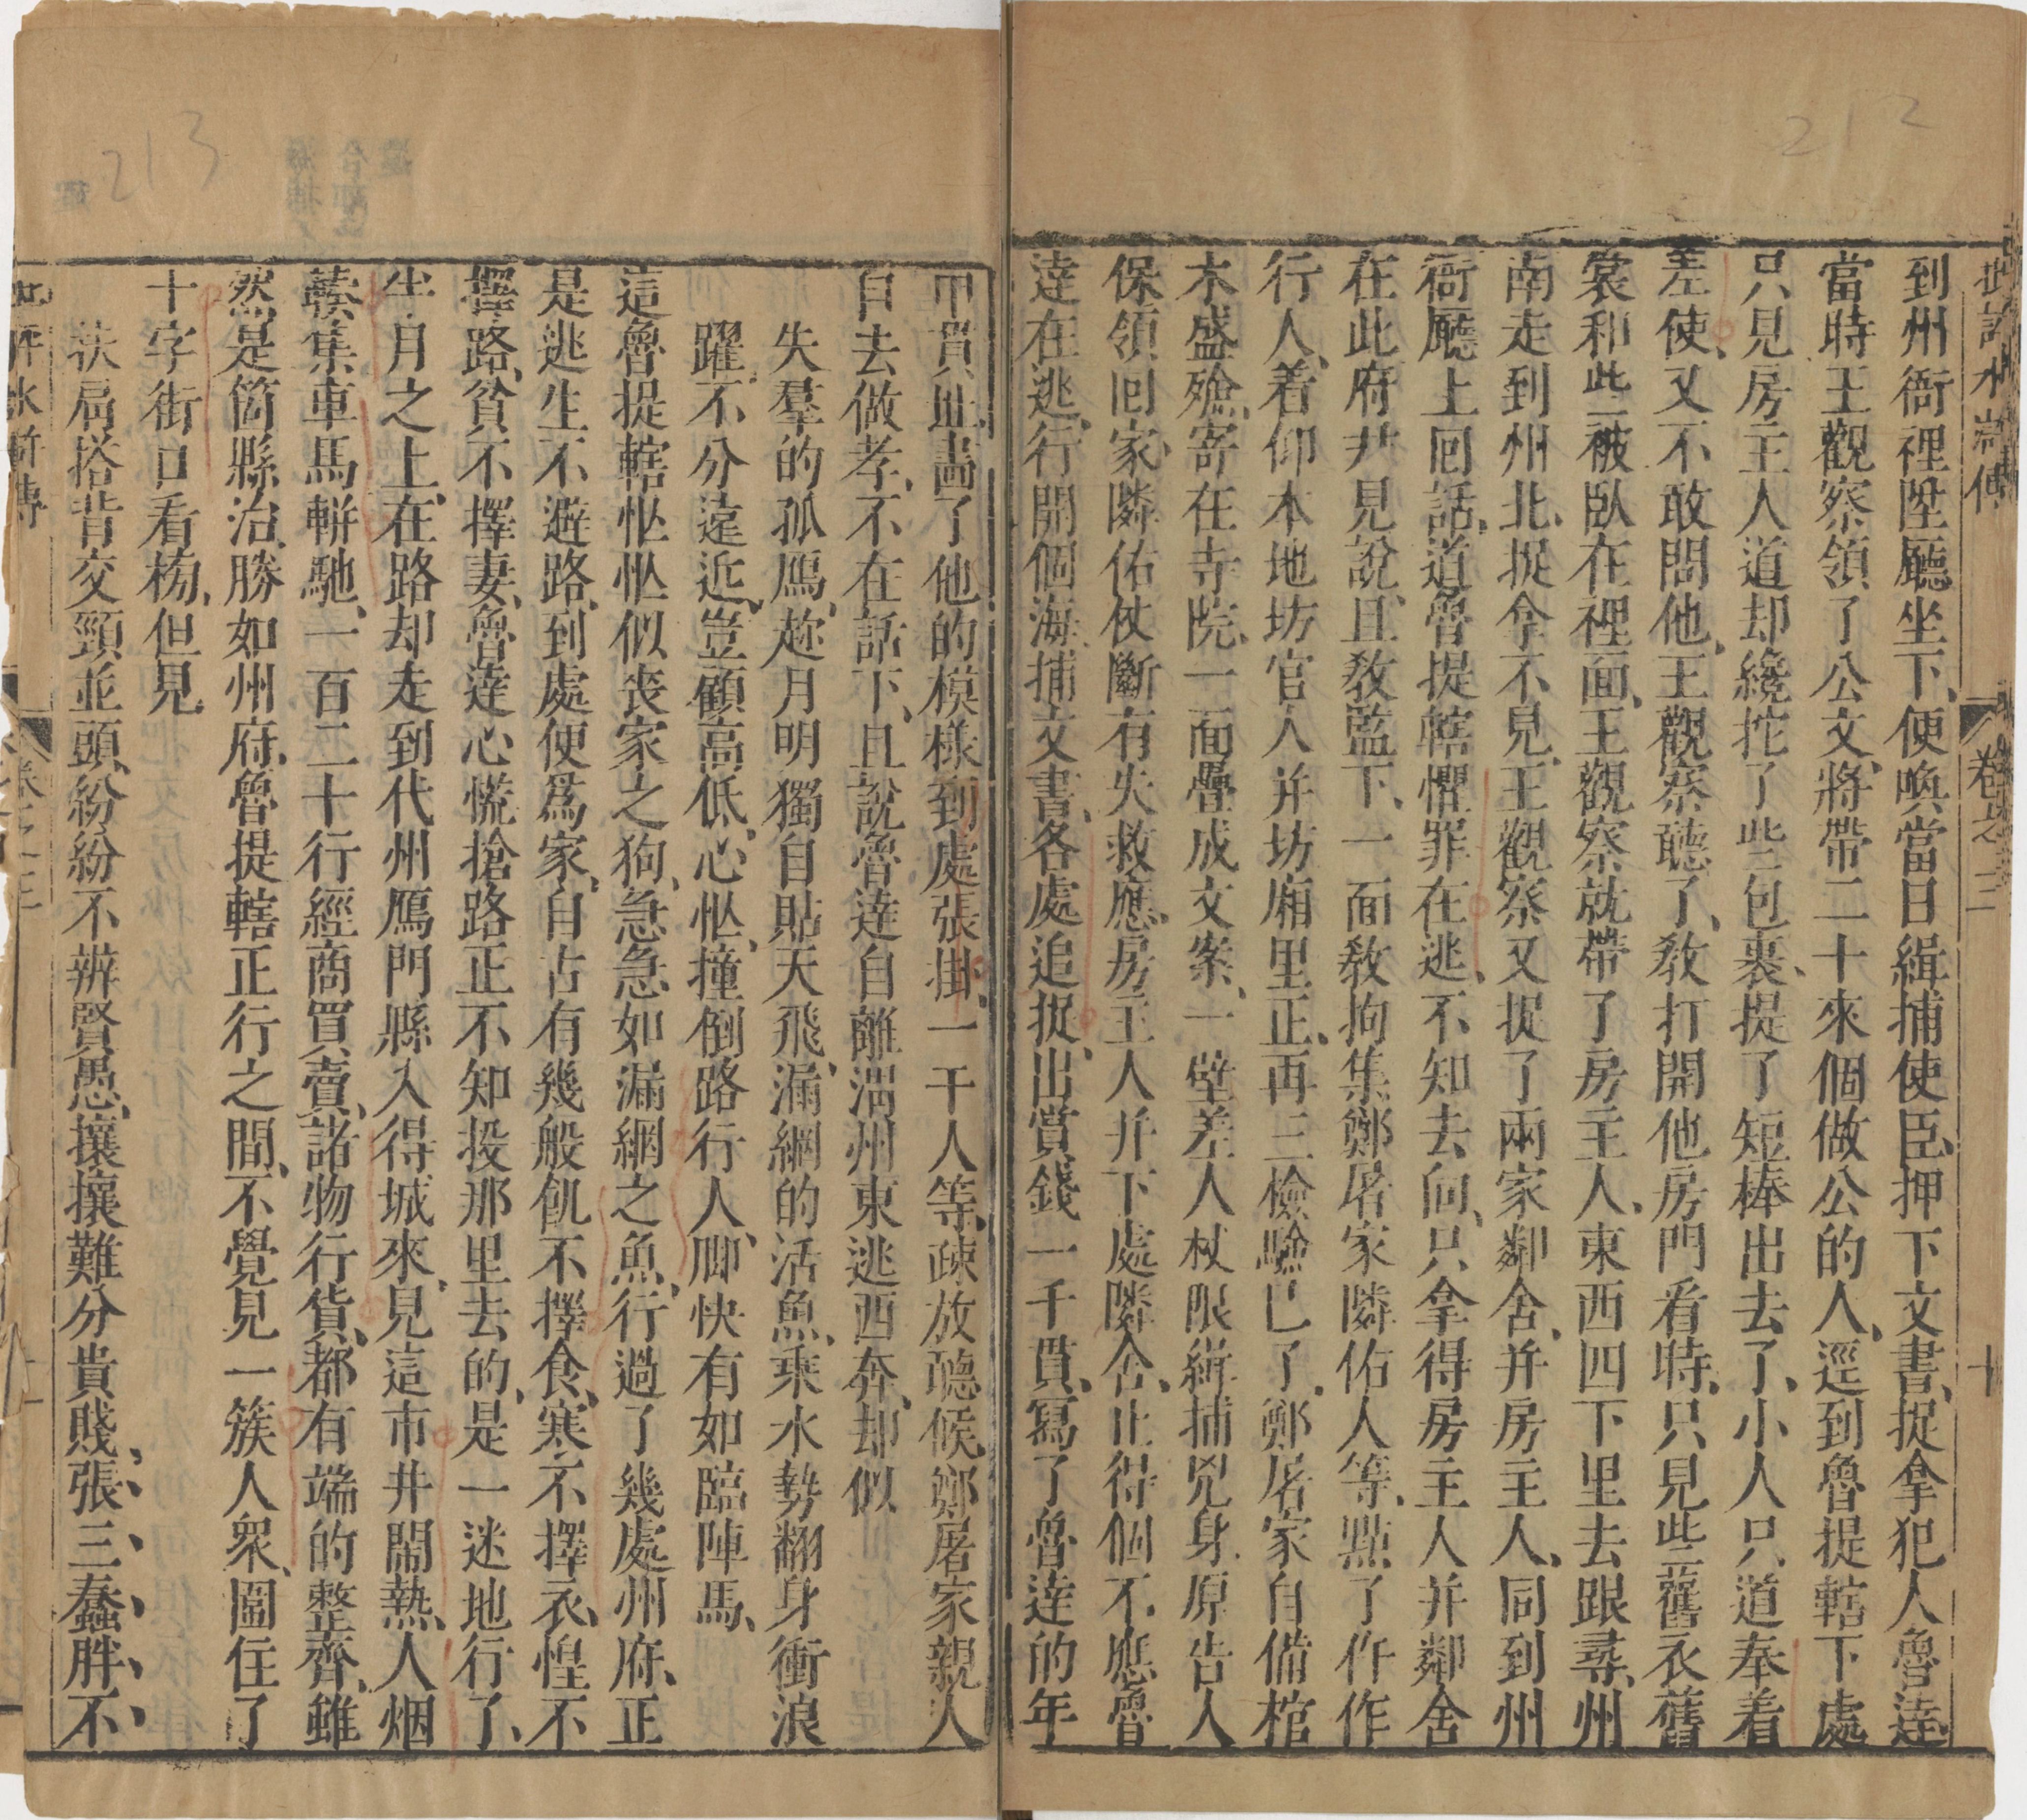 212
批評水滸傳
卷之三
十
到州衙裡陞廳坐下、便喚當日緝捕使臣、押下文書、捉拿犯人魯達、
當時王觀察領了公文、將帶二十來個做公的人、逕到魯提轄下處
只見房主人道却纔拕了些包裹、提了短棒出去了、小人只道奉着
差使、又不敢問他、王觀察聽了、教打開他房門看時、只見些舊衣舊
裳和些被臥在裡面、王觀察就帶了房主人、東西四下里去跟尋、州
南走到州北、捉拿不見、王觀察又捉了兩家鄰舍、并房主人、同到州
衙廳上回話、道魯提轄懼罪在逃、不知去向、只拿得房主人并鄰舍
在此府尹見說、且教監下、一面教拘集鄭屠家隣佑人等、點了仵作
行人、着仰本地坊官人并坊廂里正、再三檢驗已了、鄭屠家自備棺
木盛殮、寄在寺院、一面疊成文案、一壁差人杖限緝捕兇身、原告人
保領回家、隣佑杖斷有失救應、房主人并下處隣舍、止得個不應魯
達在逃、行開個海捕文書、各處追捉、出賞錢一千貫、寫了魯達的年
213
甲貫址畵了他的模樣到處張掛、一干人等、疎放聽候、鄭屠家親人
自去做孝、不在話下、且說魯達自離渭州東逃西奔、却似
失羣的孤鴈、趂月明獨自貼天飛、漏網的活魚、乘水勢翻身衝浪
躍、不分遠近、豈顧高低、心忙、撞倒路行人、脚快有如臨陣馬、
這魯提轄忙忙似喪家之狗、急急如漏網之魚、行過了幾處州府、正
是逃生不避路、到處便爲家、自古有幾般飢不擇食、寒不擇衣、惶不
擇路、貧不擇妻、魯達心慌搶路正不知投那里去的、是一迷地行了、
半月之上、在路却走到代州鴈門縣入得城來、見這市井鬧熱、人烟
輳集車馬軿馳、一百二十行經商買賣、諸物行貨、都有端的整齊、雖
然是箇縣治、勝如州府、魯提轄正行之間、不覺見一簇人衆、圍住了
十字街口看榜、但見
扶肩搭背交頸並頭、紛紛不辨賢愚、攘攘難分貴賤、張三蠢胖、不
批評水滸傳
卷之三
十一